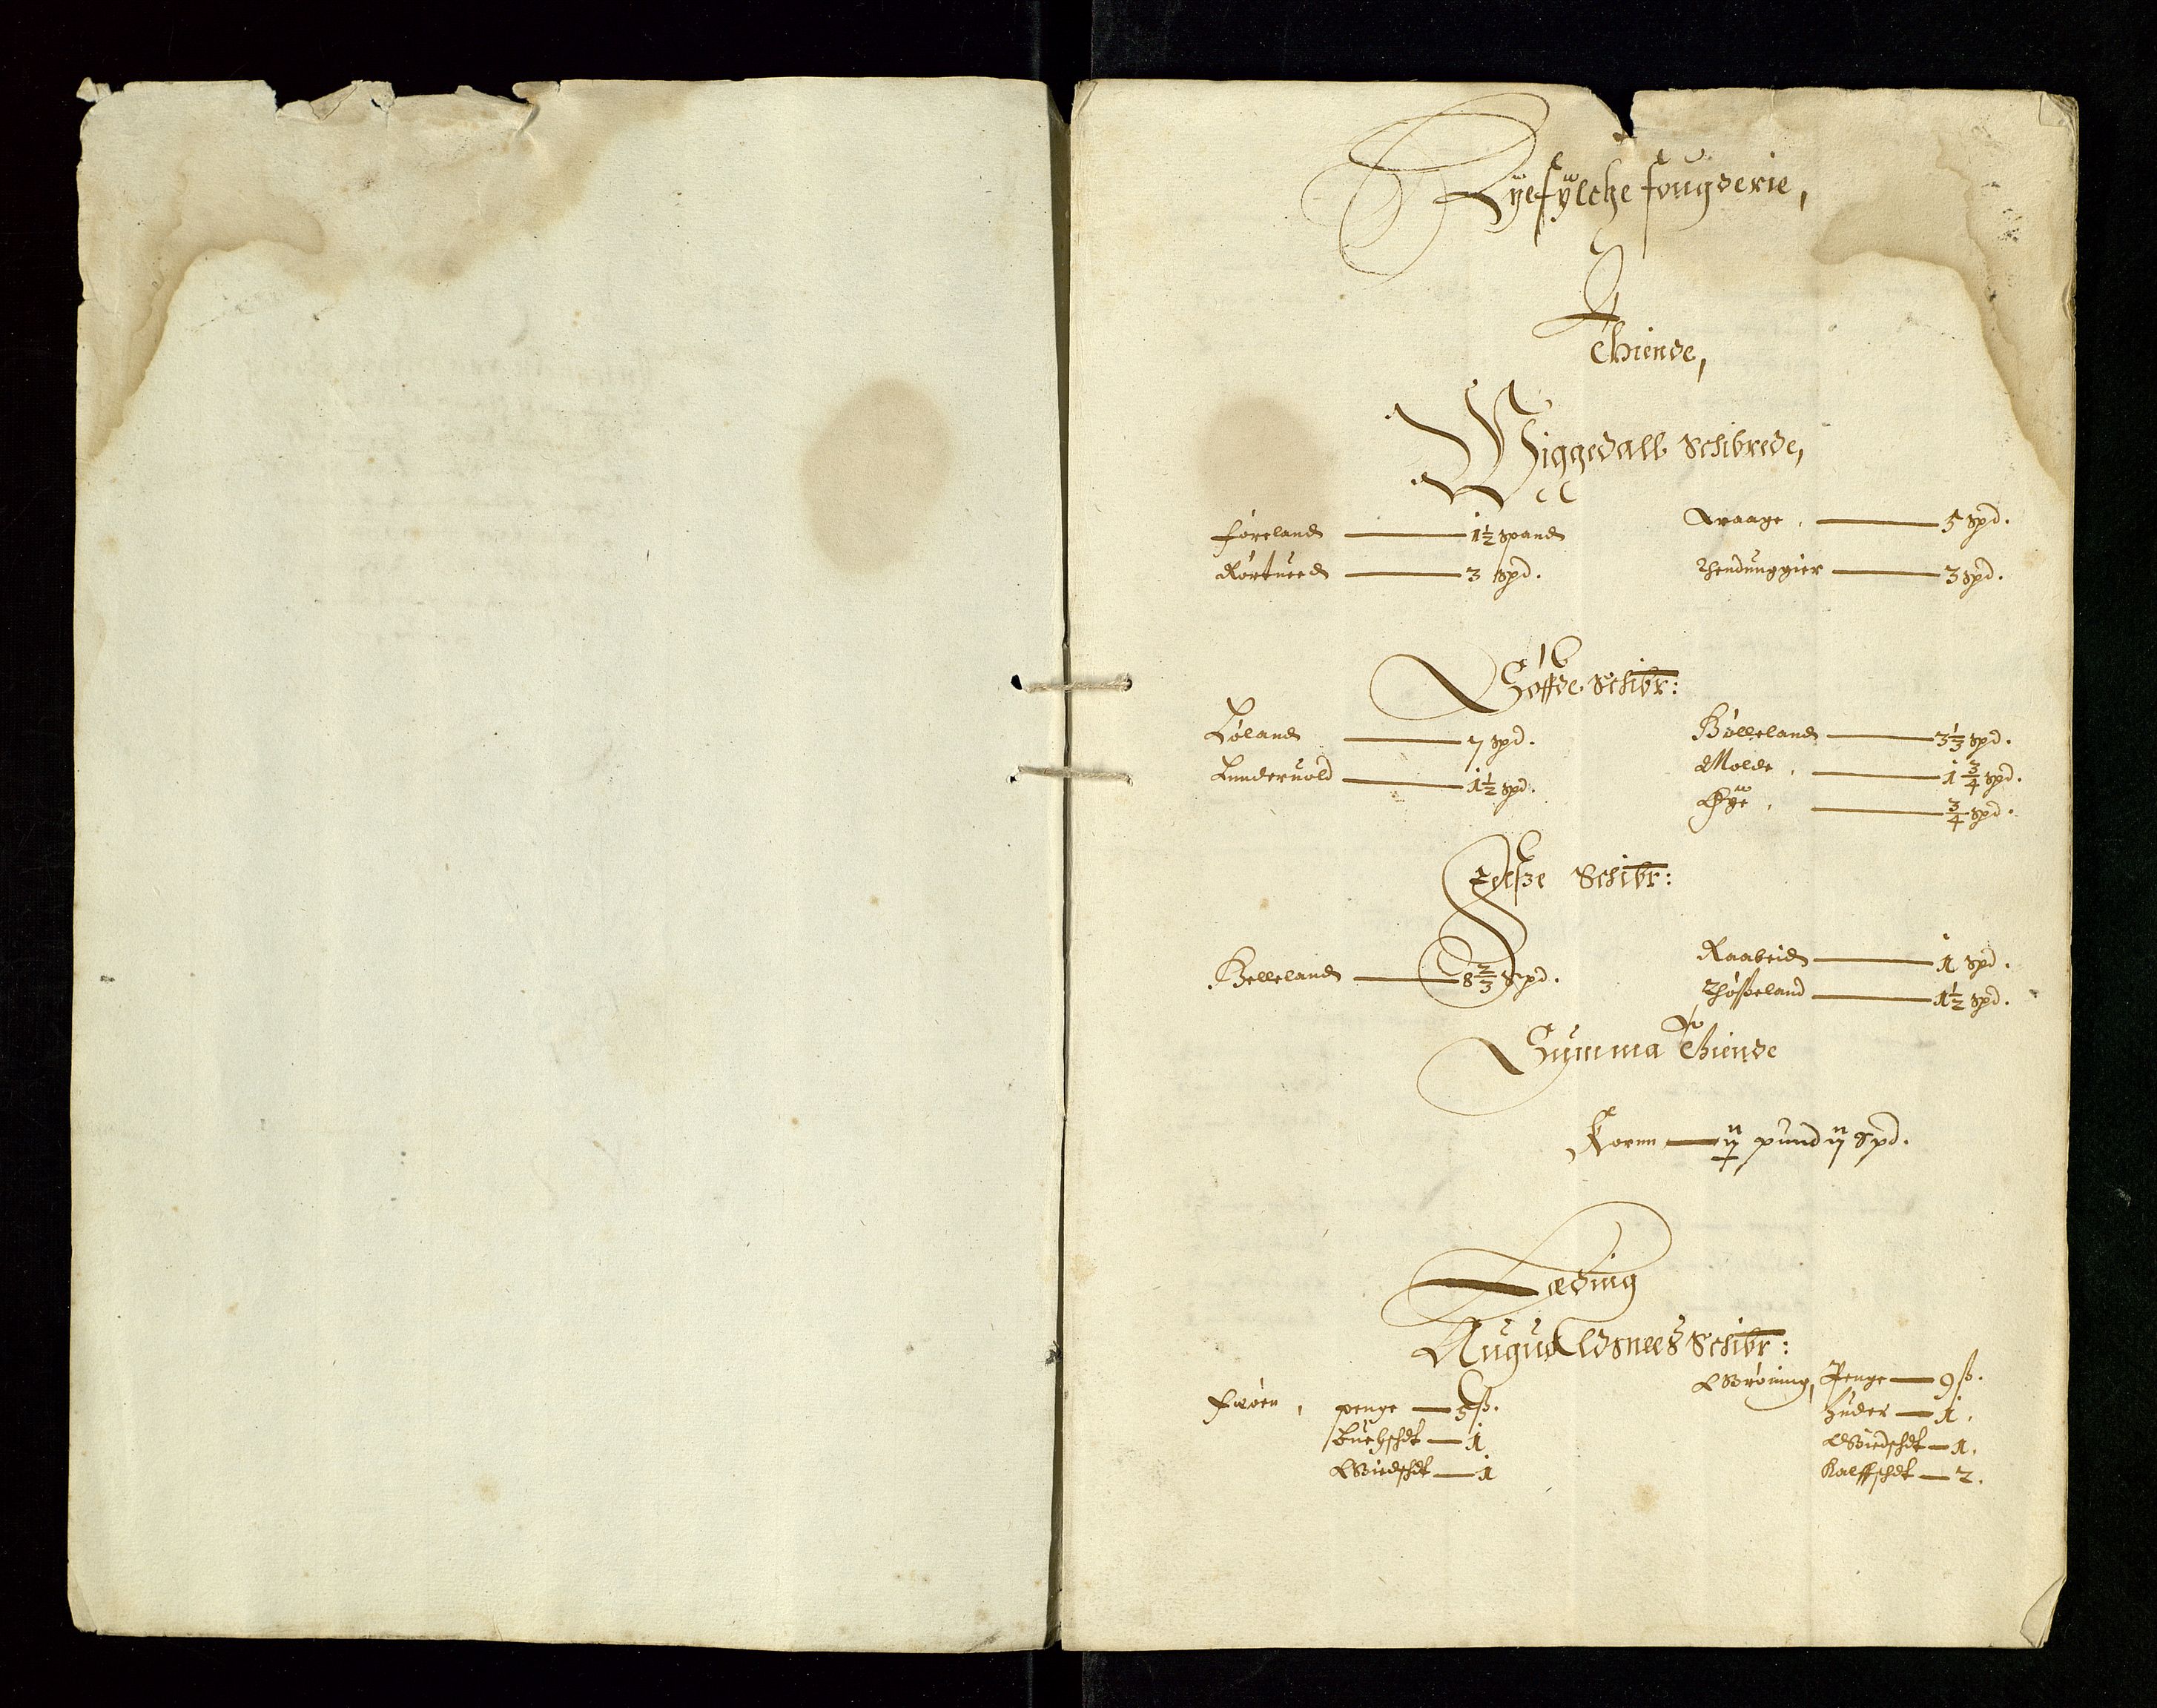 Ryefylche fougderie,
Thiende,
Wiggedall Schibrede,
Føreland — 1½ Spand
Rørtued — 3 Spd.
Qraage, — 5 Spd.
Thendunggier — 3 Spd.
Soffde Schibr:
Løland — 7 Spd.
Lunderuold — 1½ Spd.
Bølleland — 3⅓ Spd.
Molde, — 1¾ Spd.
Øye, — ¾ Spd.
Jelsze Schibr:
Helleland — 8⅔ Spd.
Raabeid — 1 Spd.
Thøsseland — 1½ Spd.
Summa Thiende
Kornn — ij pund ij Spd.
Leding
Auguoldsnees Schibr:
Feøen, penge — 5 ß.
Buchschdt — 1
Giedschdt — 1
Grøning, Penge — 9 ß.
Huder — 1.
Giedschdt — 1.
Kalffschdt — 2.